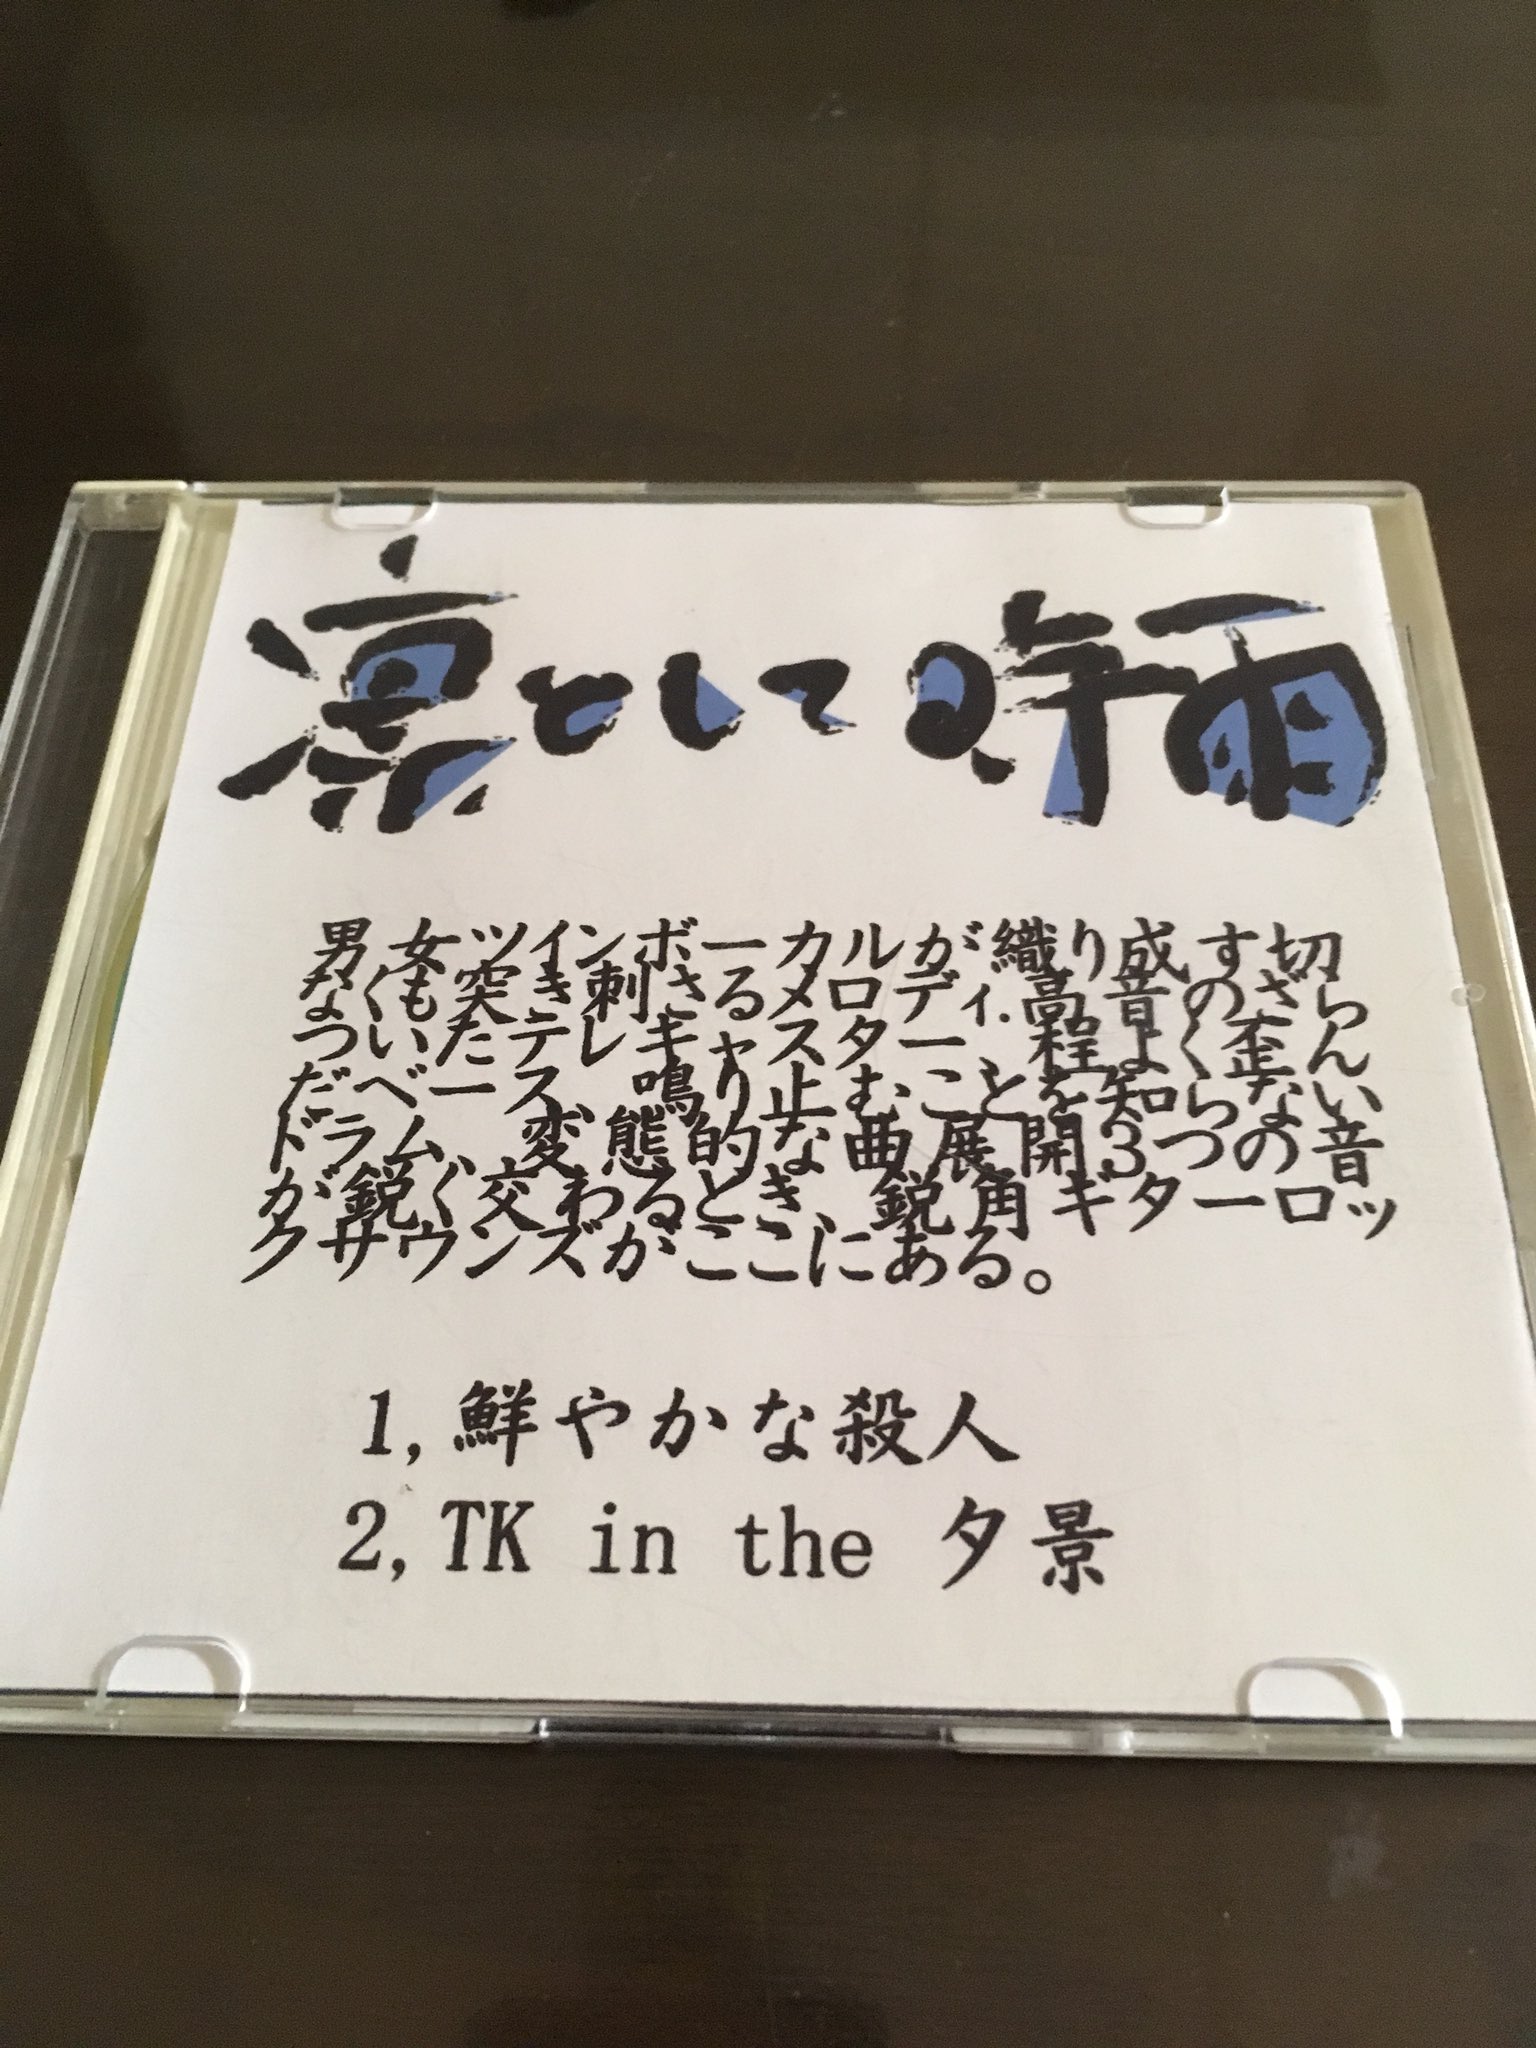 凛として時雨
男女ツインボーカルが織り成す切
なくも突き刺さるメロディ.高音のざら
ついたテレキャスター、程よく歪ん
だベース、鳴り止むことを知らない
ドラム、変態的な曲展開3つの音
が鋭ぐ交わるとき、鋭角ギターロッ
クサウンズがここにある。
1,鮮やかな殺人
2,TK in the 夕景